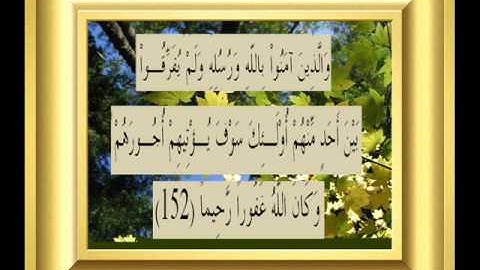 وَالَّذِينَ آمَنُواْ بِاللَّهِ وَرُسُلِهِ وَلَمْ يُفَرِّقُواْ
بَيْنَ أَحَدٍ مِّنْهُمْ أُوْلَـئِكَ سَوْفَ يُـؤْتِيهِمْ أُجُـورَهُمْ
وَكَانَ اللَّهُ غَفُورا رَّحِيماً (152)